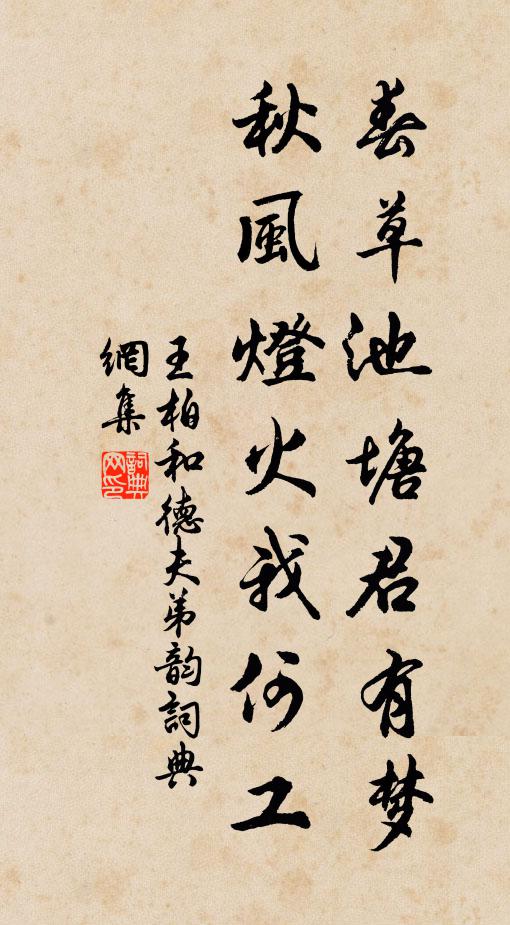 春草池塘君有梦
秋風燈火我何工
王柏和德夫弟韵詞典
網集
詞典网印